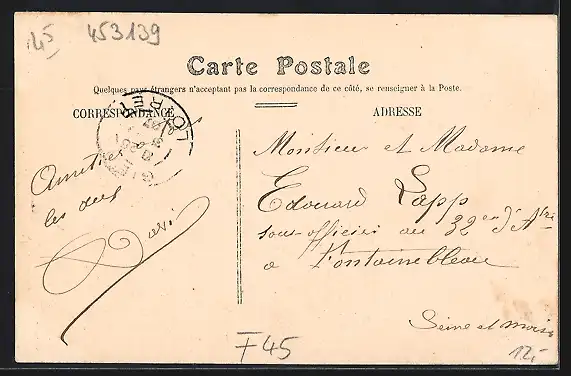 45
453139
Carte Postale
Quelques pays étrangers n'acceptant pas la correspondance de ce côté, se renseigner à la Poste.
CORRESPONDANCE
ADRESSE
LOIRET
GIEN
Amitiés
les deux
Monsieur et Madame
Edouard Lapp
sous-officier au 32en d'Atrie
a Fontainebleau
Seine et Marne
F45
12,-